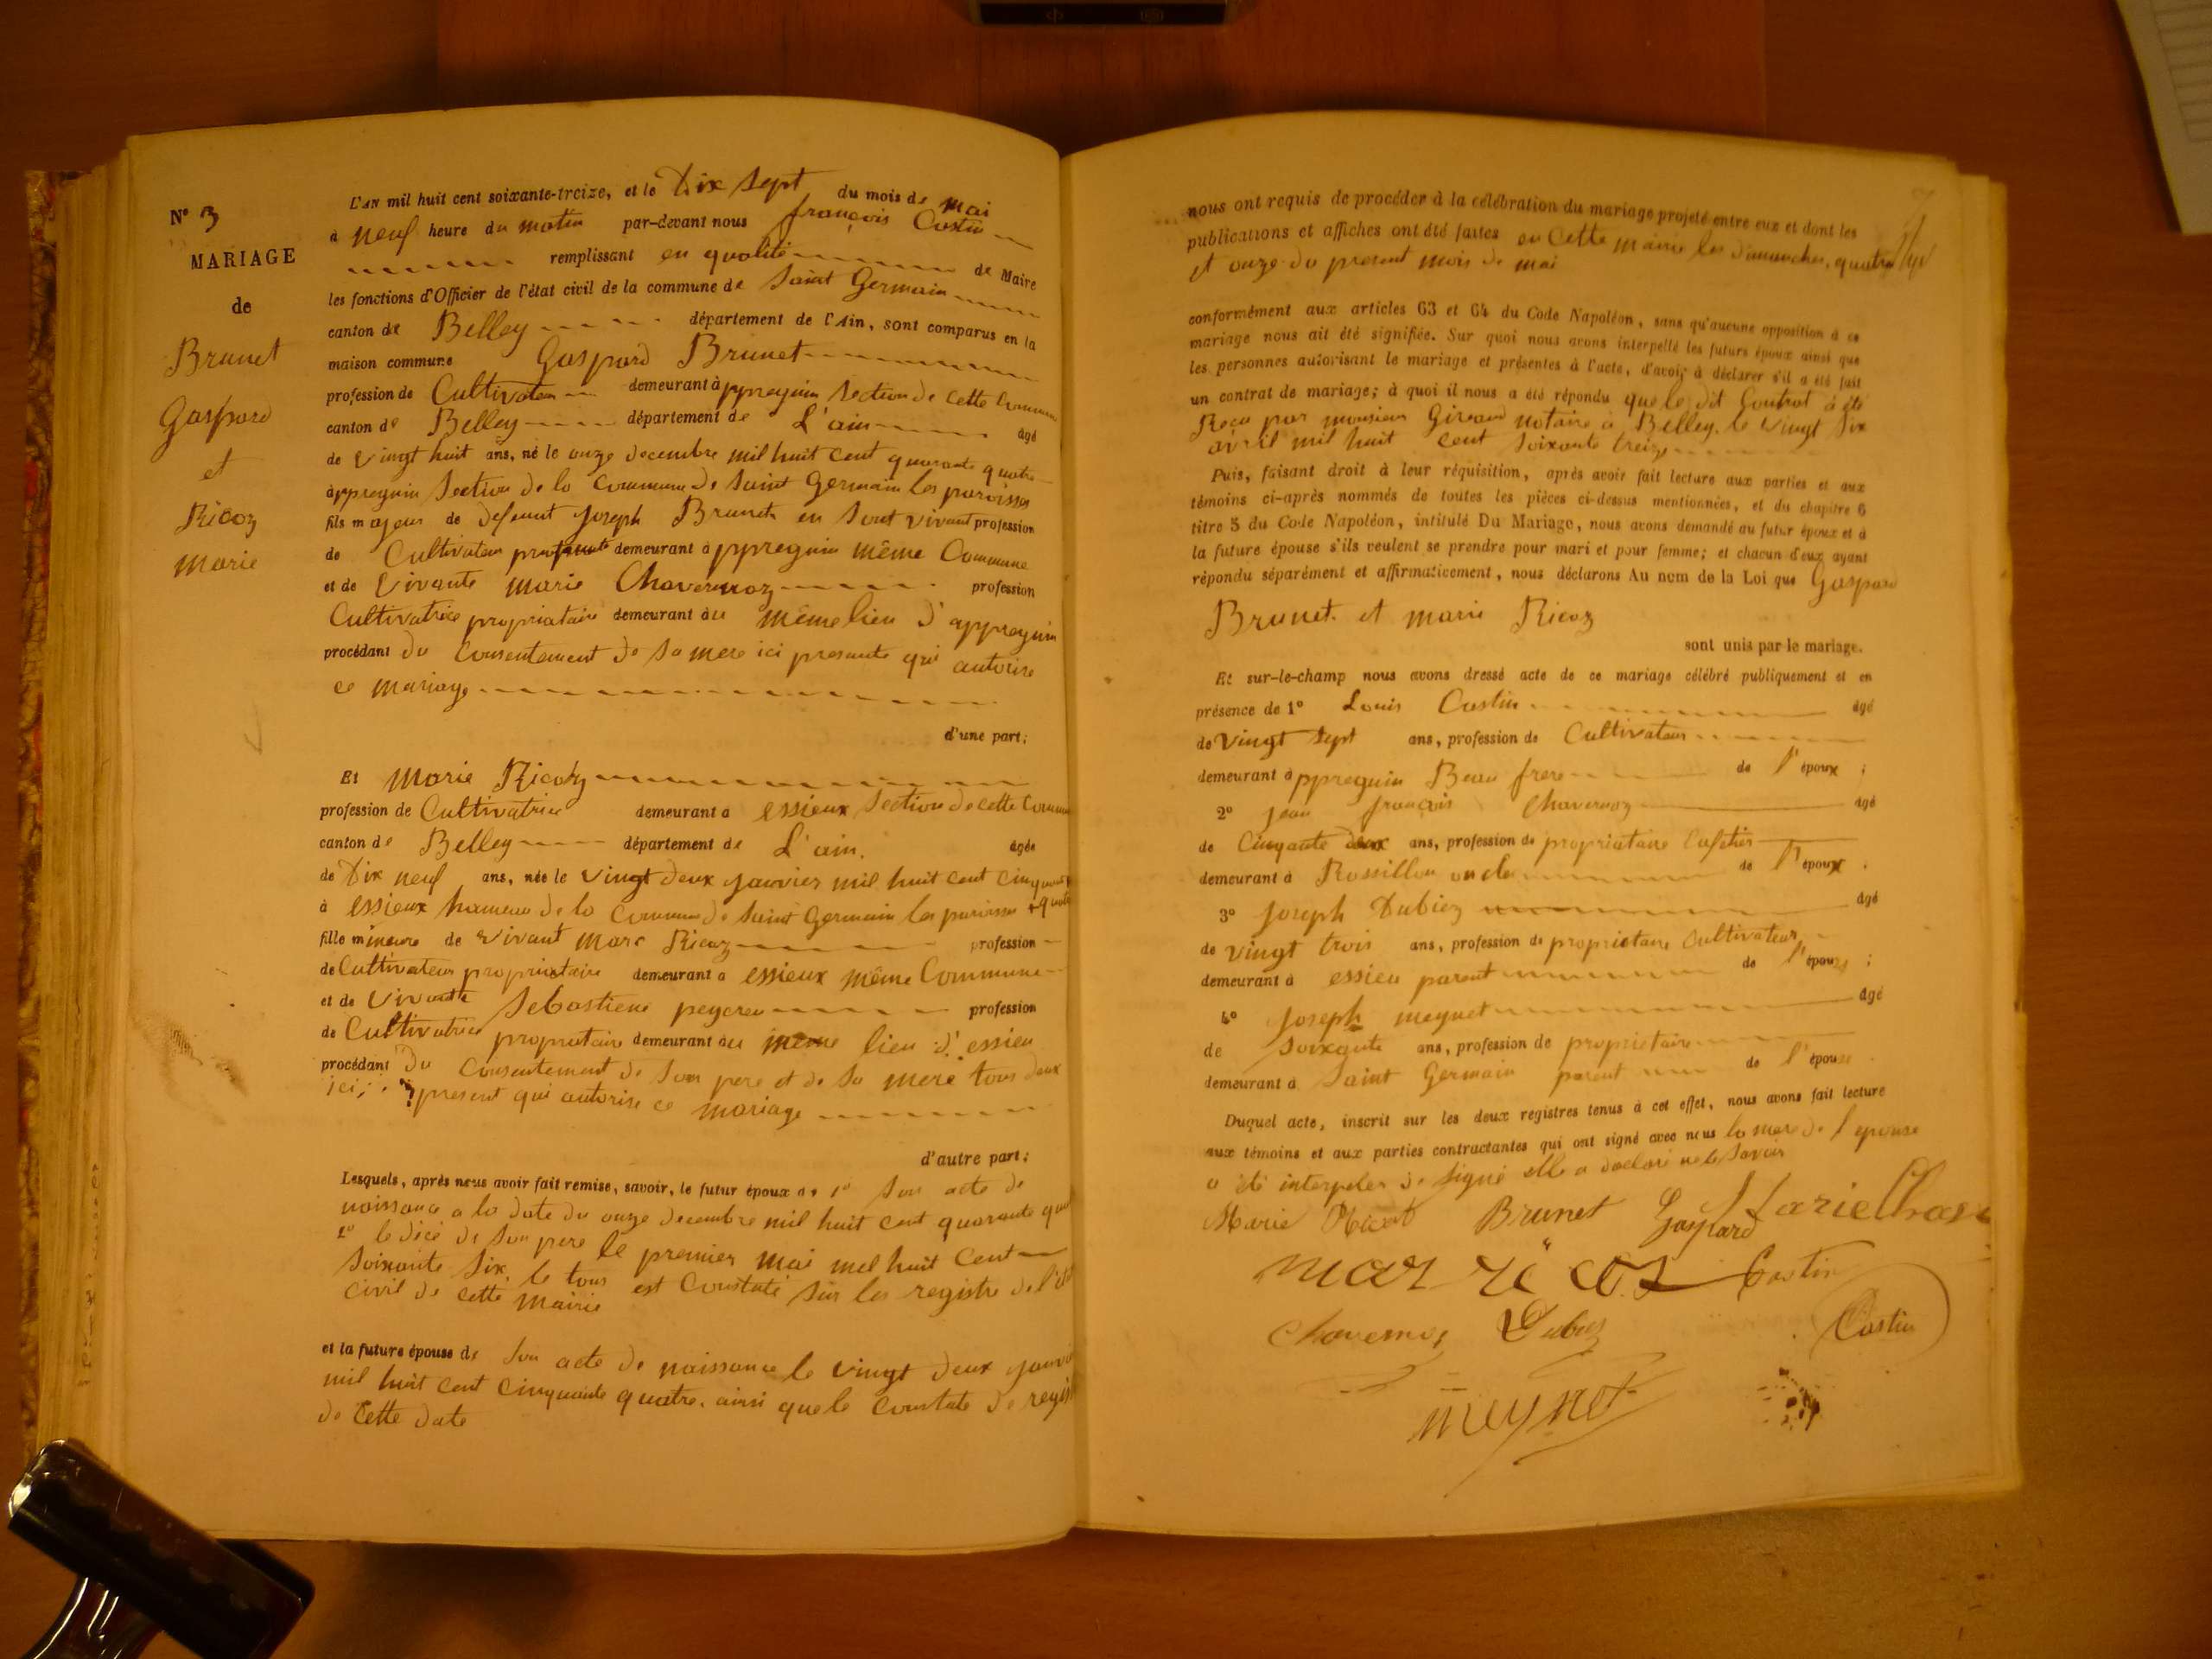 N° 3
MARIAGE
de
Brunet
Gaspard
et
Ricoz
Marie
L'AN mil huit cent soixante-treize, et le Dix sept du mois de mai
à neuf heure du matin par-devant nous françois Costin
remplissant en qualité de Maire
les fonctions d'Officier de l'état civil de la commune de Saint Germain
canton de Belley département de l'Ain, sont comparus en la
maison commune Gaspard Brunet
profession de Cultivateur demeurant à appregnin Section de cette Commune
canton de Belley département de L'ain âgé
de vingt huit ans, né le onze decembre mil huit cent quarante quatre
à appregnin Section de la Commune de Saint Germain les paroisses
fils majeur de defeunt Joseph Brunet en Sont vivant profession
de Cultivateur demeurant à ppregnin même Commune
et de Vivante marie Chavernoz profession
Cultivatrice propriataire demeurant au même lieu d'appregnin
procédant du Consentement de Sa mere ici presante qui autorise
ce mariage
d'une part;
Et Marie Ricoz
profession de Cultivatrice demeurant à essieux Section de cette Commune
canton de Belley département de L'ain. âgée
de Dix neuf ans, née le vingt deux janvier mil huit cent cinquante
à essieux hameau de la Commune de Saint Germain les paroisses + quatre
fille mineure de vivant Marc Ricoz profession
de Cultivateur propriataire demeurant à essieux même Commune
et de Vivante Sebastiene peycreu profession
de Cultivatrice propriataire demeurant au meme lieu d'essieu
procédant Du Consentement de Son pere et de Sa mere tous deux
ici present qui autorise ce mariage
d'autre part;
Lesquels, après nous avoir fait remise, savoir, le futur époux de 1° Son acte de
naissance a la date du onze decembre mil huit cent quarante quatre
le dicé de Son pere le premier mai mil huit Cent
Soixante Six, le tous est Constaté Sur les registre de l'état
civil de cette Mairie
et la future épouse de Son acte de naissance le vingt deux janvier
mil huit cent cinquante quatre. ainsi que le Constate de regist
de Cette date
nous ont requis de procéder à la célébration du mariage projeté entre eux et dont les
publications et affiches ont été faites en Cette mairie les dimanches, quatre
et onze du present mois de mai
conformément aux articles 63 et 64 du Code Napoléon, sans qu'aucune opposition à ce
mariage nous ait été signifiée. Sur quoi nous avons interpellé les futurs époux ainsi que
les personnes autorisant le mariage et présentes à l'acte, d'avoir à déclarer s'il a été fait
un contrat de mariage; à quoi il nous a été répondu que le dit Contrat à été
Reçu par monsieur Giraud notaire à Belley. le vingt Six
avril mil huit cent Soixante treize
Puis, faisant droit à leur réquisition, après avoir fait lecture aux parties et aux
témoins ci-après nommés de toutes les pièces ci-dessus mentionnées, et du chapitre 6
titre 5 du Code Napoléon, intitulé Du Mariage, nous avons demandé au futur époux et à
la future épouse s'ils veulent se prendre pour mari et pour femme; et chacun d'eux ayant
répondu séparément et affirmativement, nous déclarons Au nom de la Loi que Gaspard
Brunet. et marie Ricoz
sont unis par le mariage.
Et sur-le-champ nous avons dressé acte de ce mariage célébré publiquement et en
présence de 1° Louis Costin âgé
de Vingt Sept ans, profession de Cultivateur
demeurant à ppregnin Beau frere de l'époux ;
2° jean françois Chavernoz âgé
de Cinquante deux ans, profession de propriataire Cafetier
demeurant à Rossillon oncle de l'époux .
3° Joseph Dubiez âgé
de vingt trois ans, profession de propriétaire Cultivateur
demeurant à essieu parent de l'épouse ;
4° Joseph meynet âgé
de Soixante ans, profession de propriétaire
demeurant à Saint Germain parent de l'épouse
Duquel acte, inscrit sur les deux registres tenus à cet effet, nous avons fait lecture
aux témoins et aux parties contractantes qui ont signé avec nous la mere de l'epouse
a été interpeler de Signé elle a declaré ne le Savoir
Marie Ricot Brunet Gaspard Marie Chave
mar ricoz Costin
Chavernoz Dubiez Costin
meynet